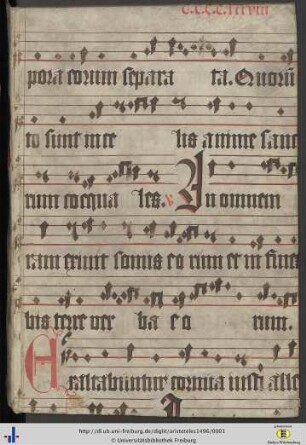 pora eorum separa ta. Quorū
to sunt in ce lis anime sanc
rum coequa les. v. In omnem
ram exiuit sonus eorum et in fines
bis terre ver ba eo rum.
Exaltabuntur cornua iusti alle
http://dl.ub.uni-freiburg.de/diglit/aristoteles1496/0001
© Universitätsbibliothek Freiburg